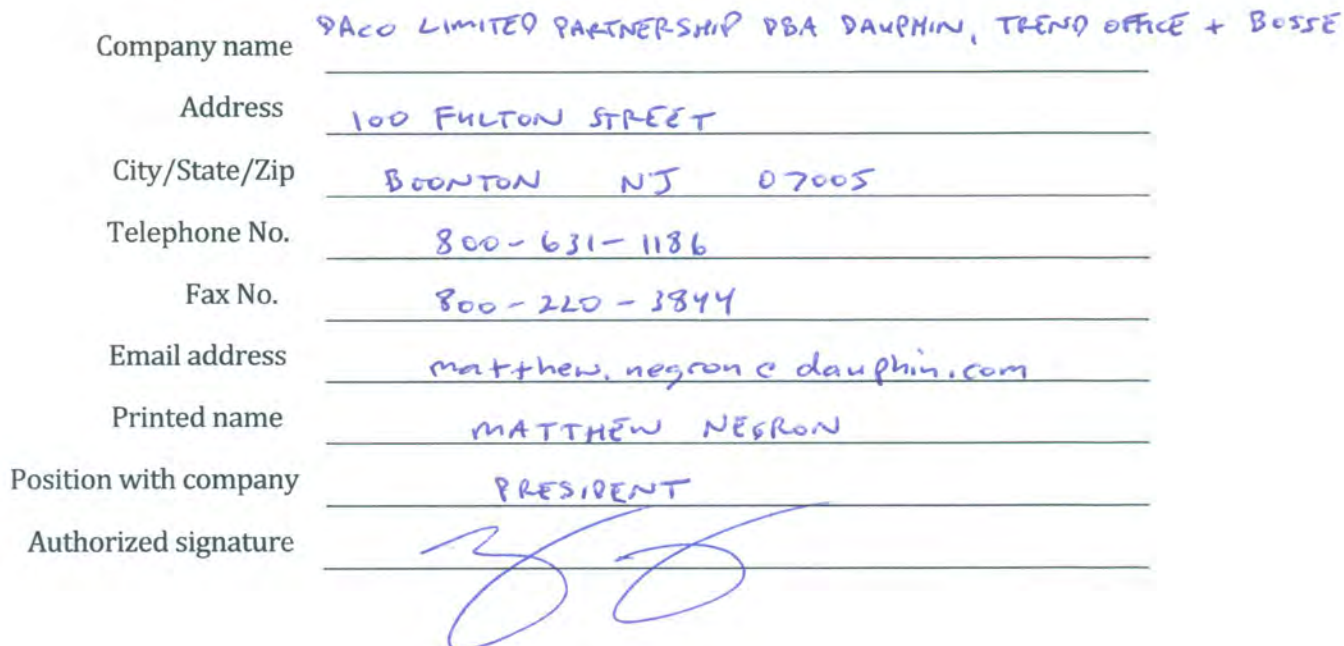 Company name DACO LIMITED PARTNERSHIP DBA DAUPHIN, TREND OFFICE + BOSSE
Address 100 FULTON STREET
City/State/Zip BOONTON NJ 07005
Telephone No. 800-631-1186
Fax No. 800-220-3844
Email address matthew.negron@dauphin.com
Printed name MATTHEW NEGRON
Position with company PRESIDENT
Authorized signature